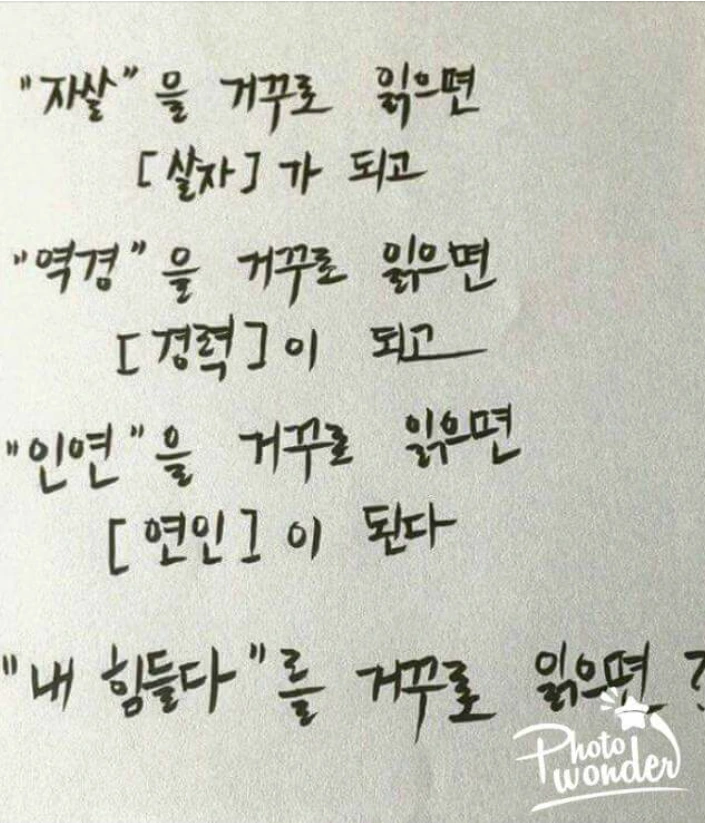 "자살"을 거꾸로 읽으면
[살자]가 되고
"역경"을 거꾸로 읽으면
[경력]이 되고
"인연"을 거꾸로 읽으면
[연인]이 된다
"내 힘들다"를 거꾸로 읽으면?
Photo
wonder